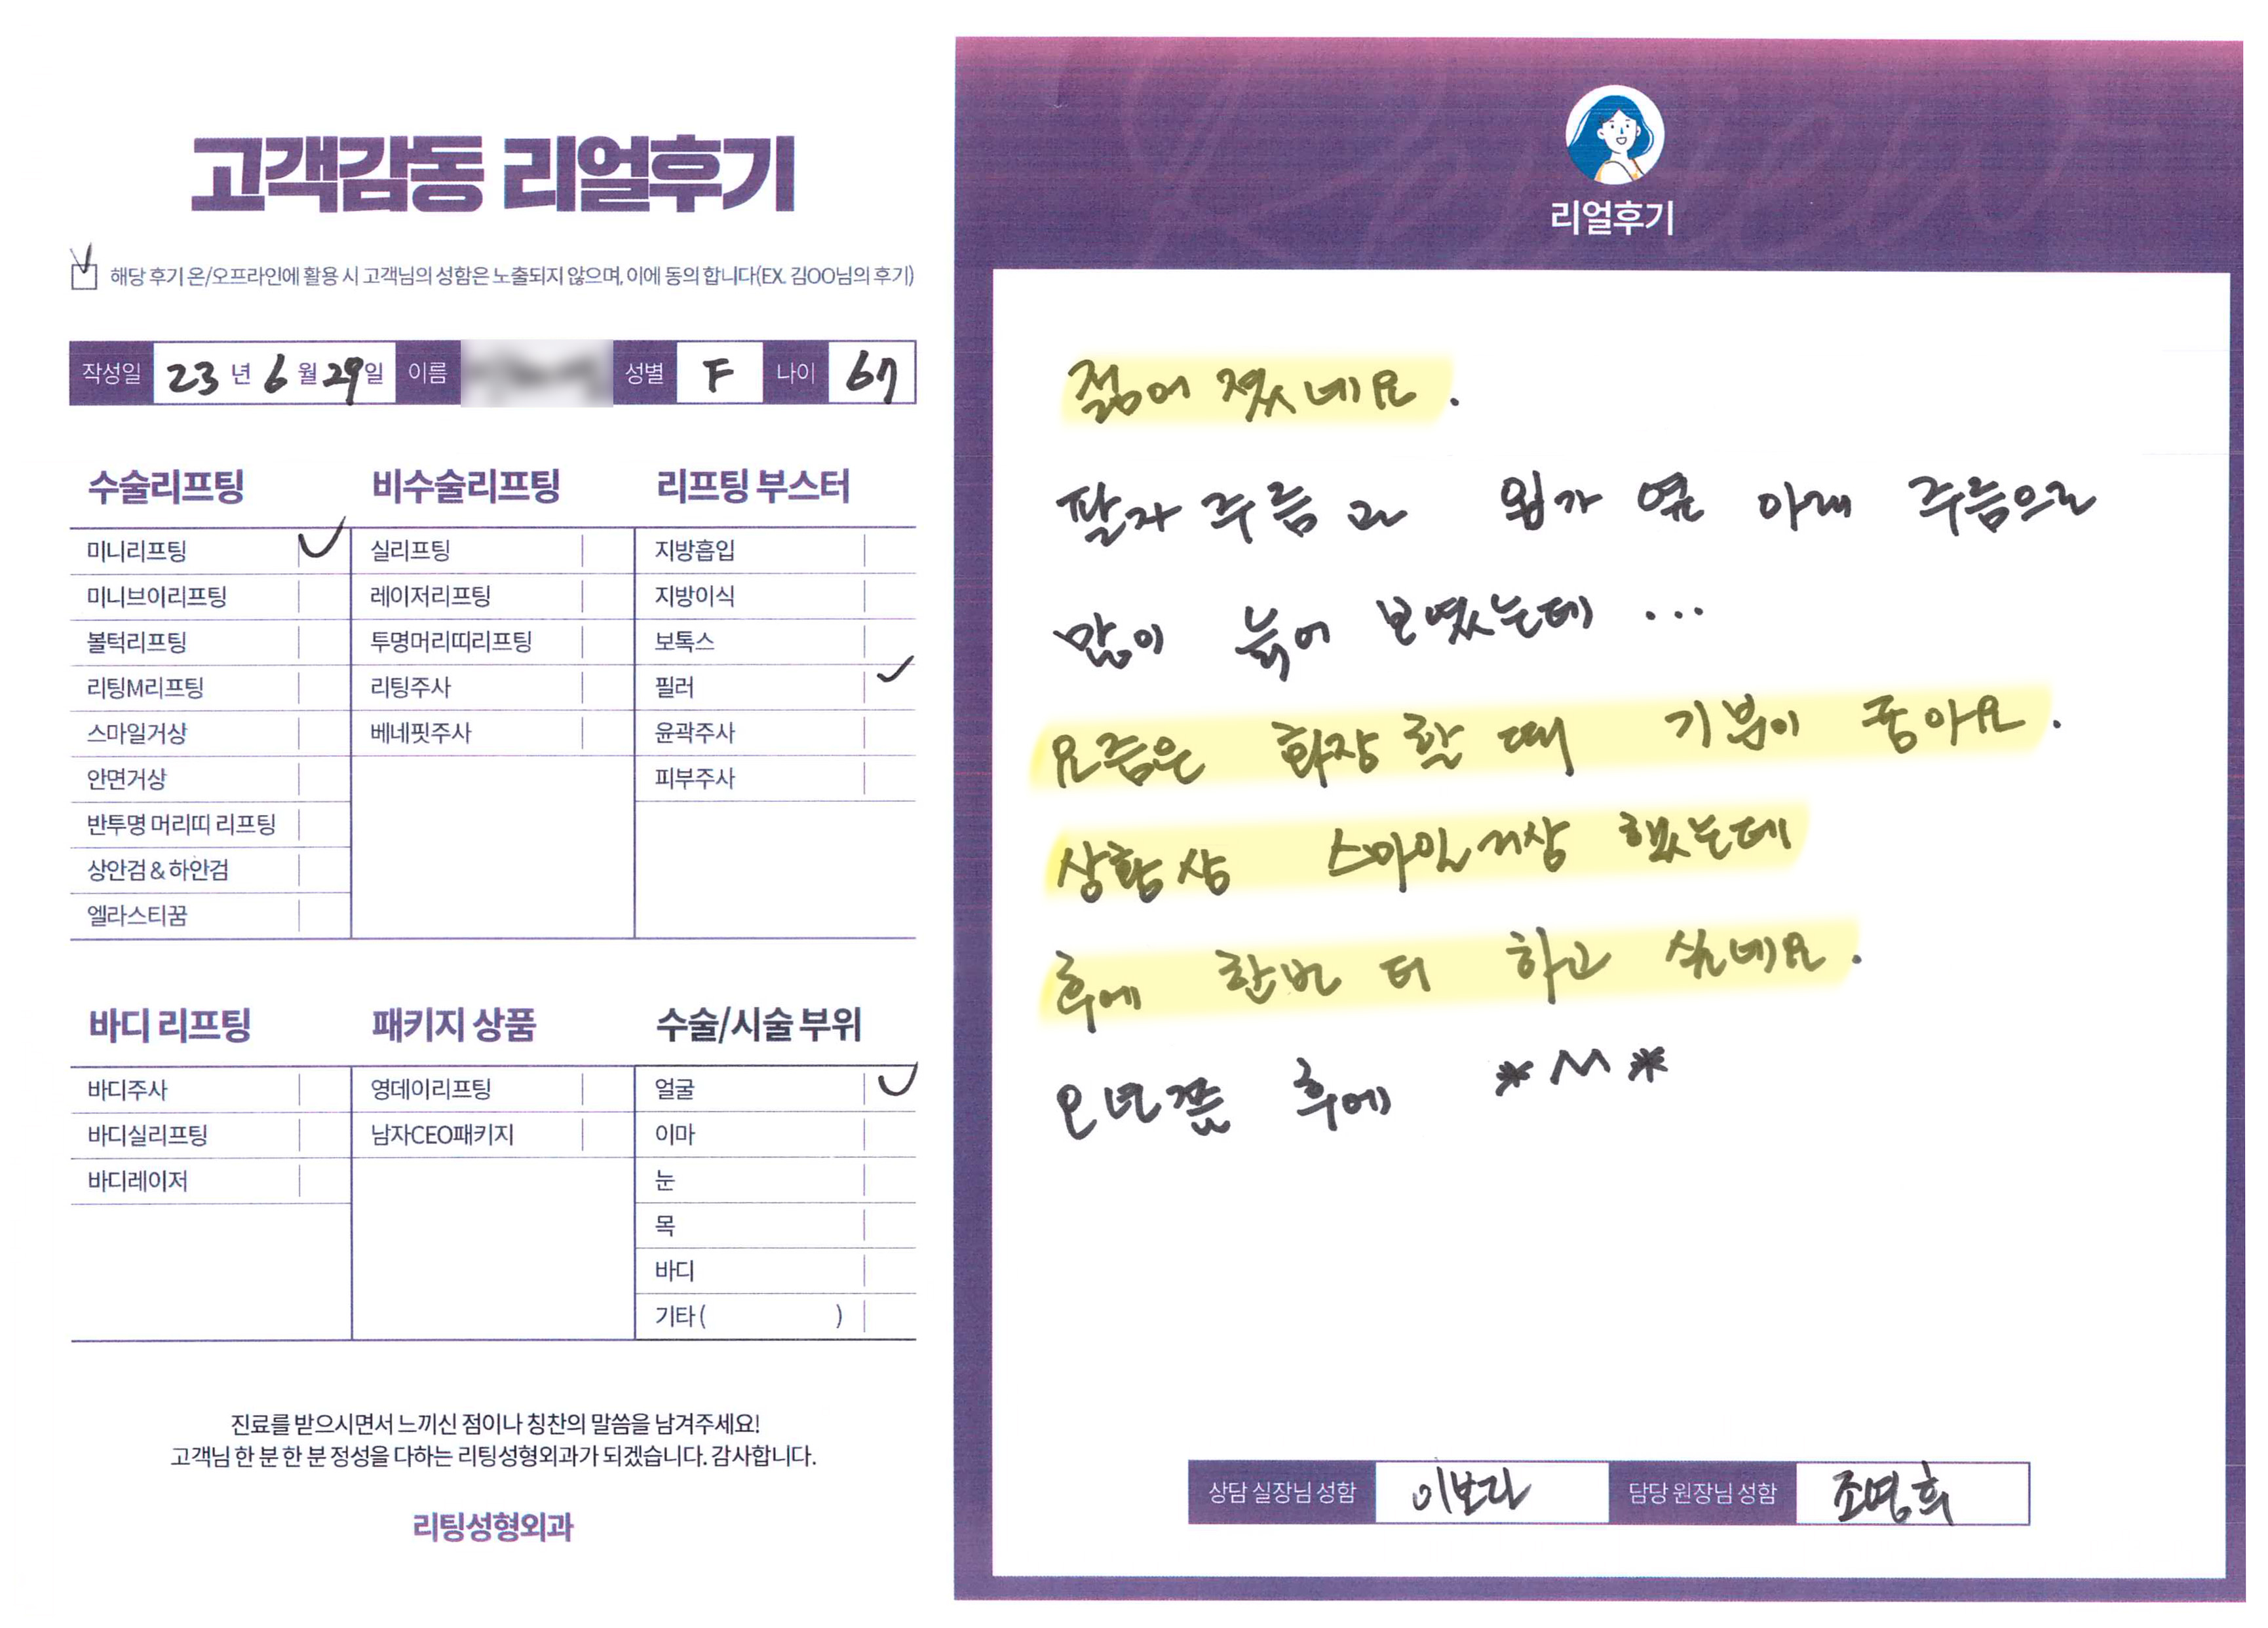 고객감동 리얼후기
해당 후기 온/오프라인에 활용 시 고객님의 성함은 노출되지 않으며, 이에 동의 합니다(EX. 김OO님의 후기)
작성일 23 년 6 월 29일 이름 성별 F 나이 67
수술리프팅 비수술리프팅 리프팅 부스터
미니리프팅 실리프팅 지방흡입
미니브이리프팅 레이저리프팅 지방이식
볼턱리프팅 투명머리띠리프팅 보톡스
리팅M리프팅 리팅주사 필러
스마일거상 베네핏주사 윤곽주사
안면거상 피부주사
반투명 머리띠 리프팅
상안검 & 하안검
엘라스티꿈
바디 리프팅 패키지 상품 수술/시술 부위
바디주사 영데이리프팅 얼굴
바디실리프팅 남자CEO패키지 이마
바디레이저 눈
목
바디
기타 ( )
진료를 받으시면서 느끼신 점이나 칭찬의 말씀을 남겨주세요!
고객님 한 분 한 분 정성을 다하는 리팅성형외과가 되겠습니다. 감사합니다.
리팅성형외과
리얼후기
젊어 졌네요.
팔자 주름과 입가 옆 아래 주름으로
많이 늙어 보였는데 ...
요즘은 화장 할 때 기분이 좋아요.
상황상 스마일거상 했는데
후에 한번 더 하고 싶네요.
오년쯤 후에 *^^*
상담 실장님 성함 이보라 담당 원장님 성함 조영희